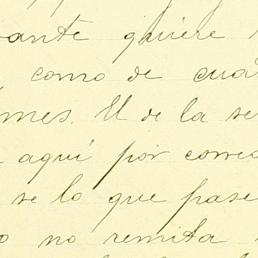 ante quiere
como de cua
mes. U de la se
aquí por corre
se lo que pase
o no remita